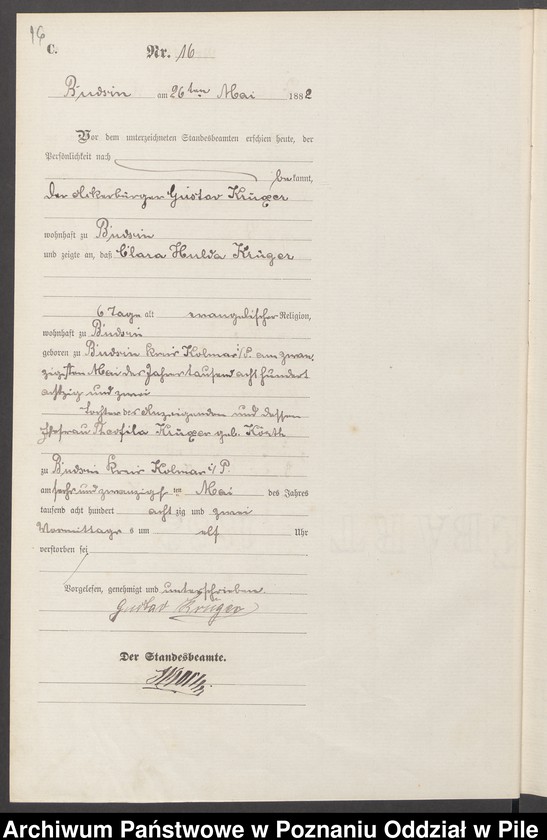 16
C.
Nr. 16
Budsin am 26ten Mai 1882
Vor dem unterzeichneten Standesbeamten erschien heute, der
Persönlichkeit nach
bekannt,
der Ackerbürger Gustav Krüger
wohnhaft zu Budsin
und zeigte an, daß Clara Hulda Krüger
6 Tage alt evangelischer Religion,
wohnhaft zu Budsin
geboren zu Budsin Kreis Kolmar i/P. am zwan-
zigsten Mai des Jahres tausend acht hundert
achtzig und zwei
Tochter des Anzeigenden und dessen
Ehefrau Krüger geb.
zu Budsin Kreis Kolmar i/P.
am sechs und zwanzigsten Mai des Jahres
tausend acht hundert achtzig und zwei
Vormittags um elf Uhr
verstorben sei
Vorgelesen, genehmigt und unterschrieben.
Gustav Krüger
Der Standesbeamte.
Archiwum Państwowe w Poznaniu Oddział w Pile